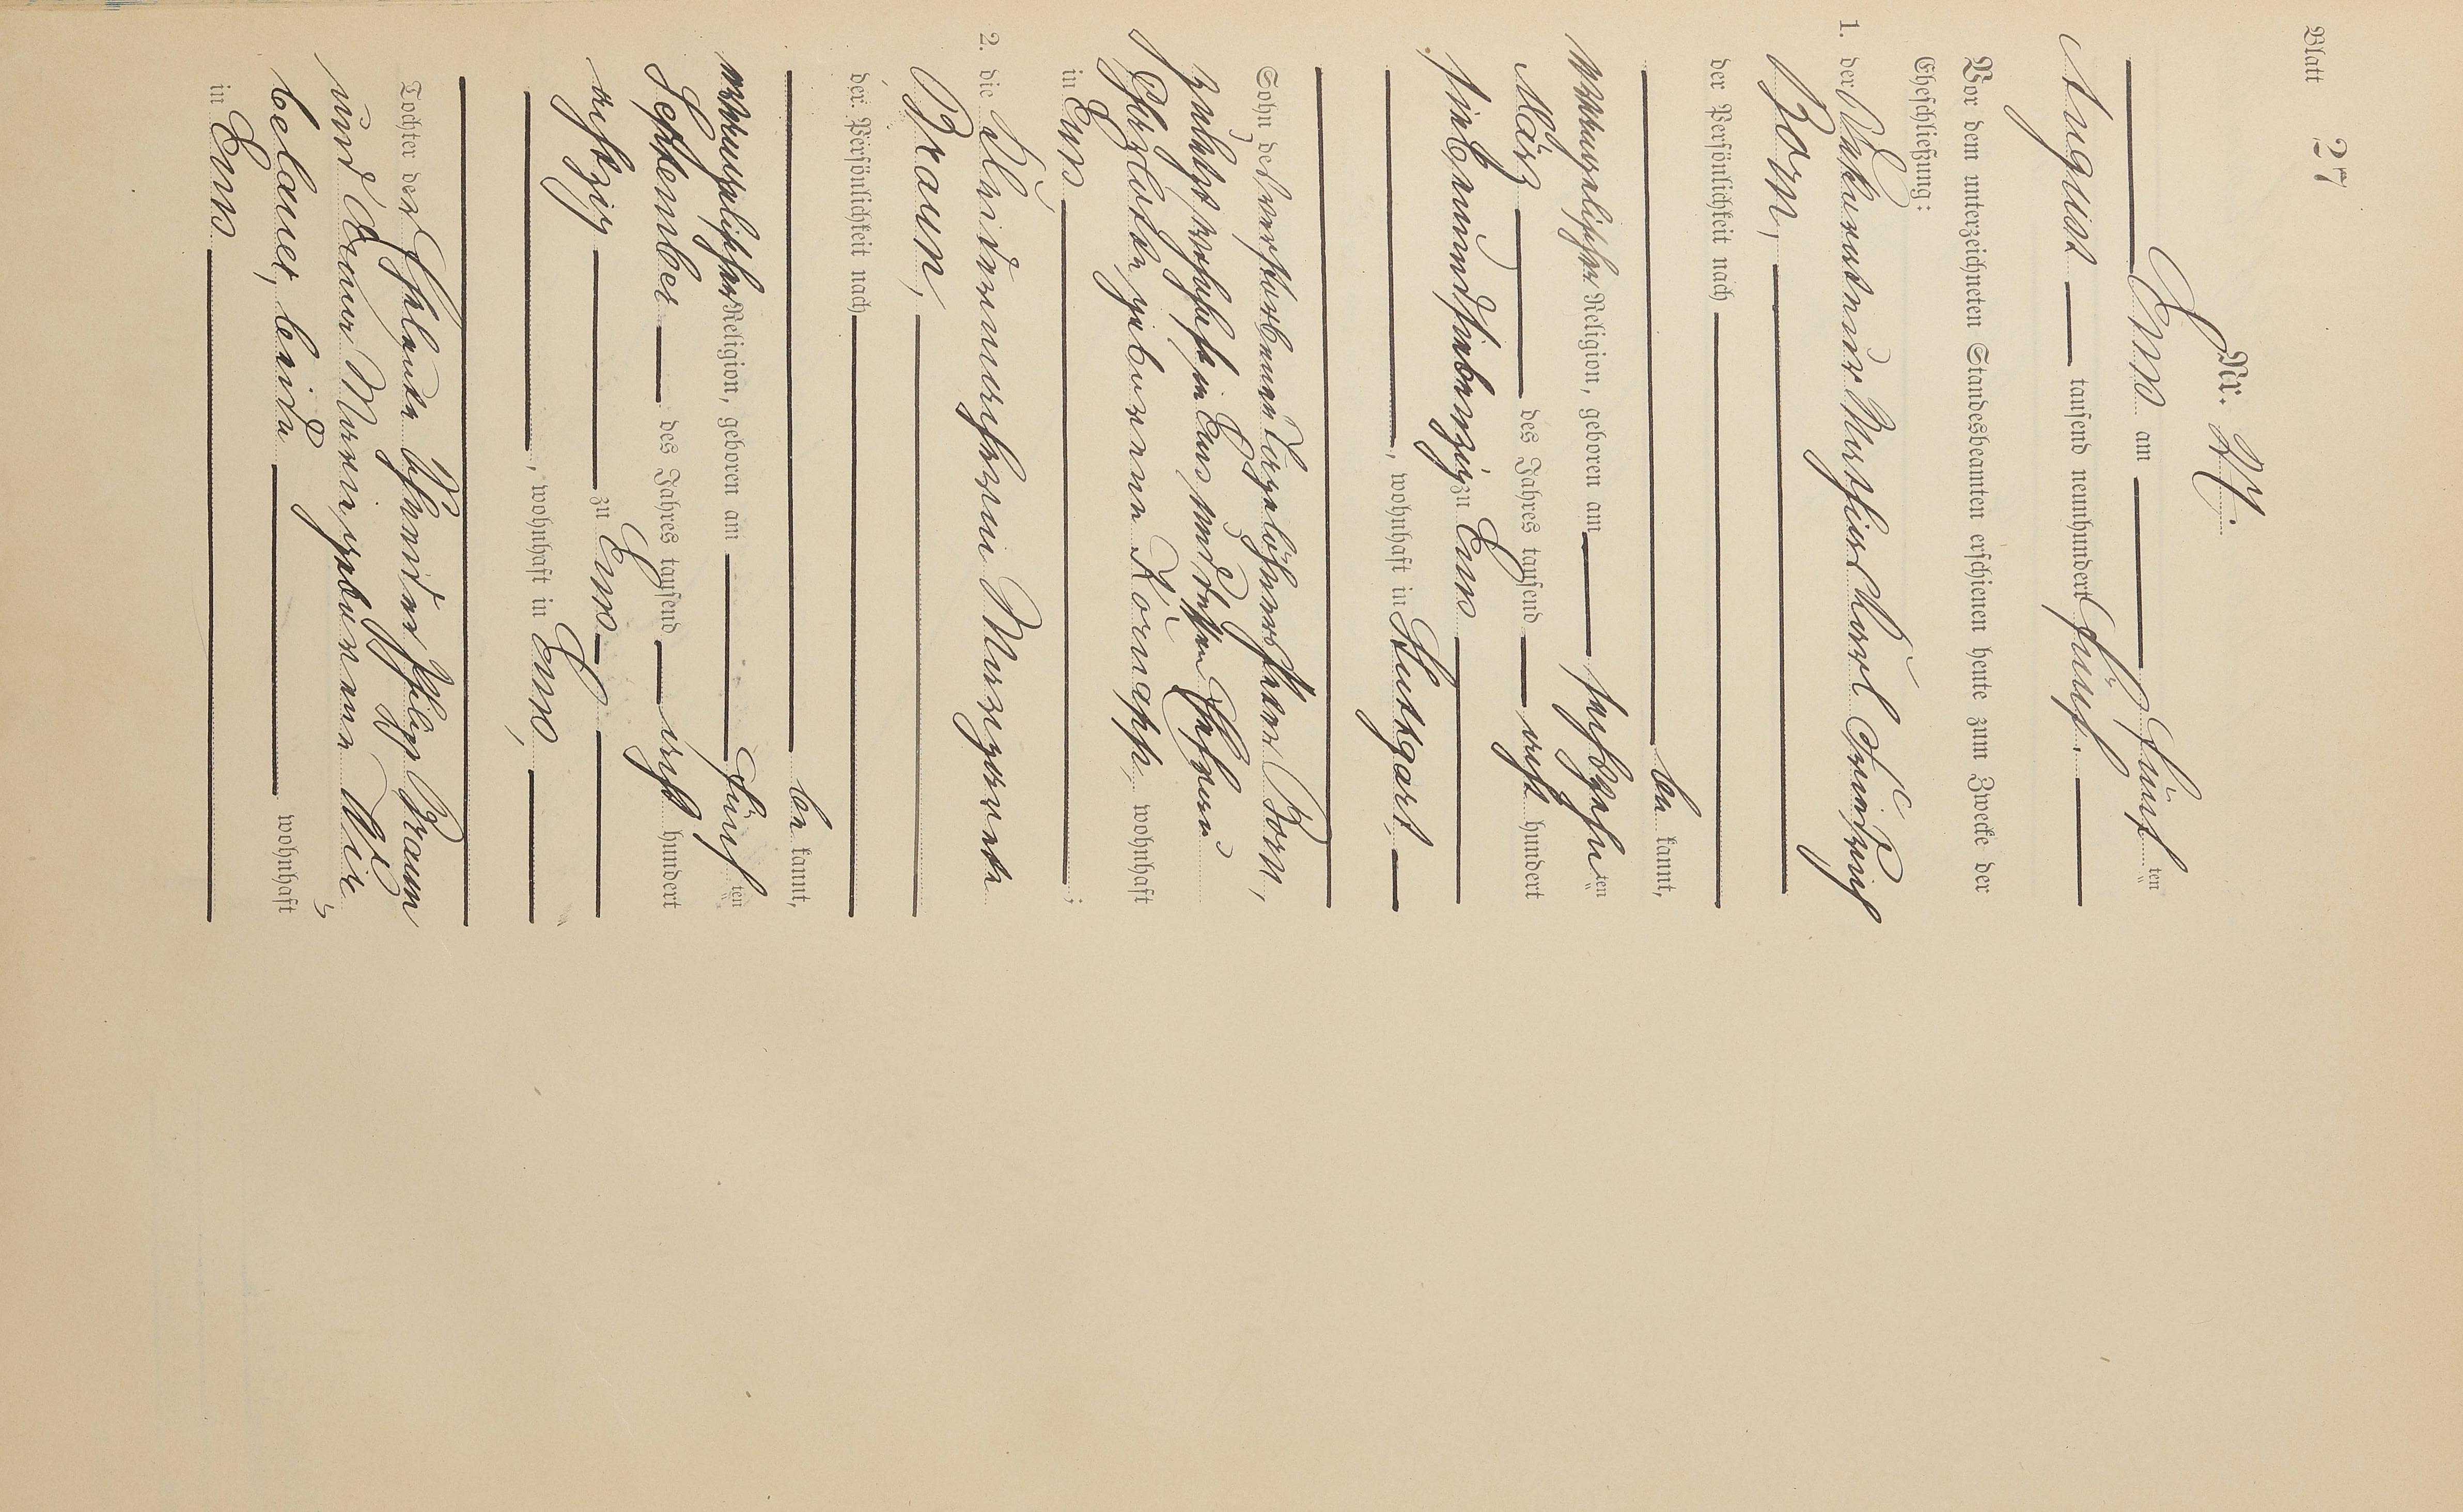 Blatt 27
Nr. 27.
Ems am fünften
August tausend neunhundert fünf.
Vor dem unterzeichneten Standesbeamten erschienen heute zum Zwecke der
Eheschließung:
1. der Dekorationsmaler Karl Friedrich
Born,
der Persönlichkeit nach
be kannt,
evangelischer Religion, geboren am sechszehnten
März des Jahres tausend acht hundert
siebenundsiebenzig zu Ems
, wohnhaft in Stuttgart
Sohn des verstorbenen Taglöhners Born,
zuletzt wohnhaft in Ems und dessen Ehefrau
geborenen wohnhaft
in Ems ;
2. die Kleidermacherin Margarethe
Braun,
der Persönlichkeit nach
be kannt,
evangelischer Religion, geboren am fünften
September des Jahres tausend acht hundert
achtzig zu Ems
, wohnhaft in Ems,
Tochter der Eheleute Schneider Philipp Braun
und Marie geborenen
belauer, beide wohnhaft
in Ems